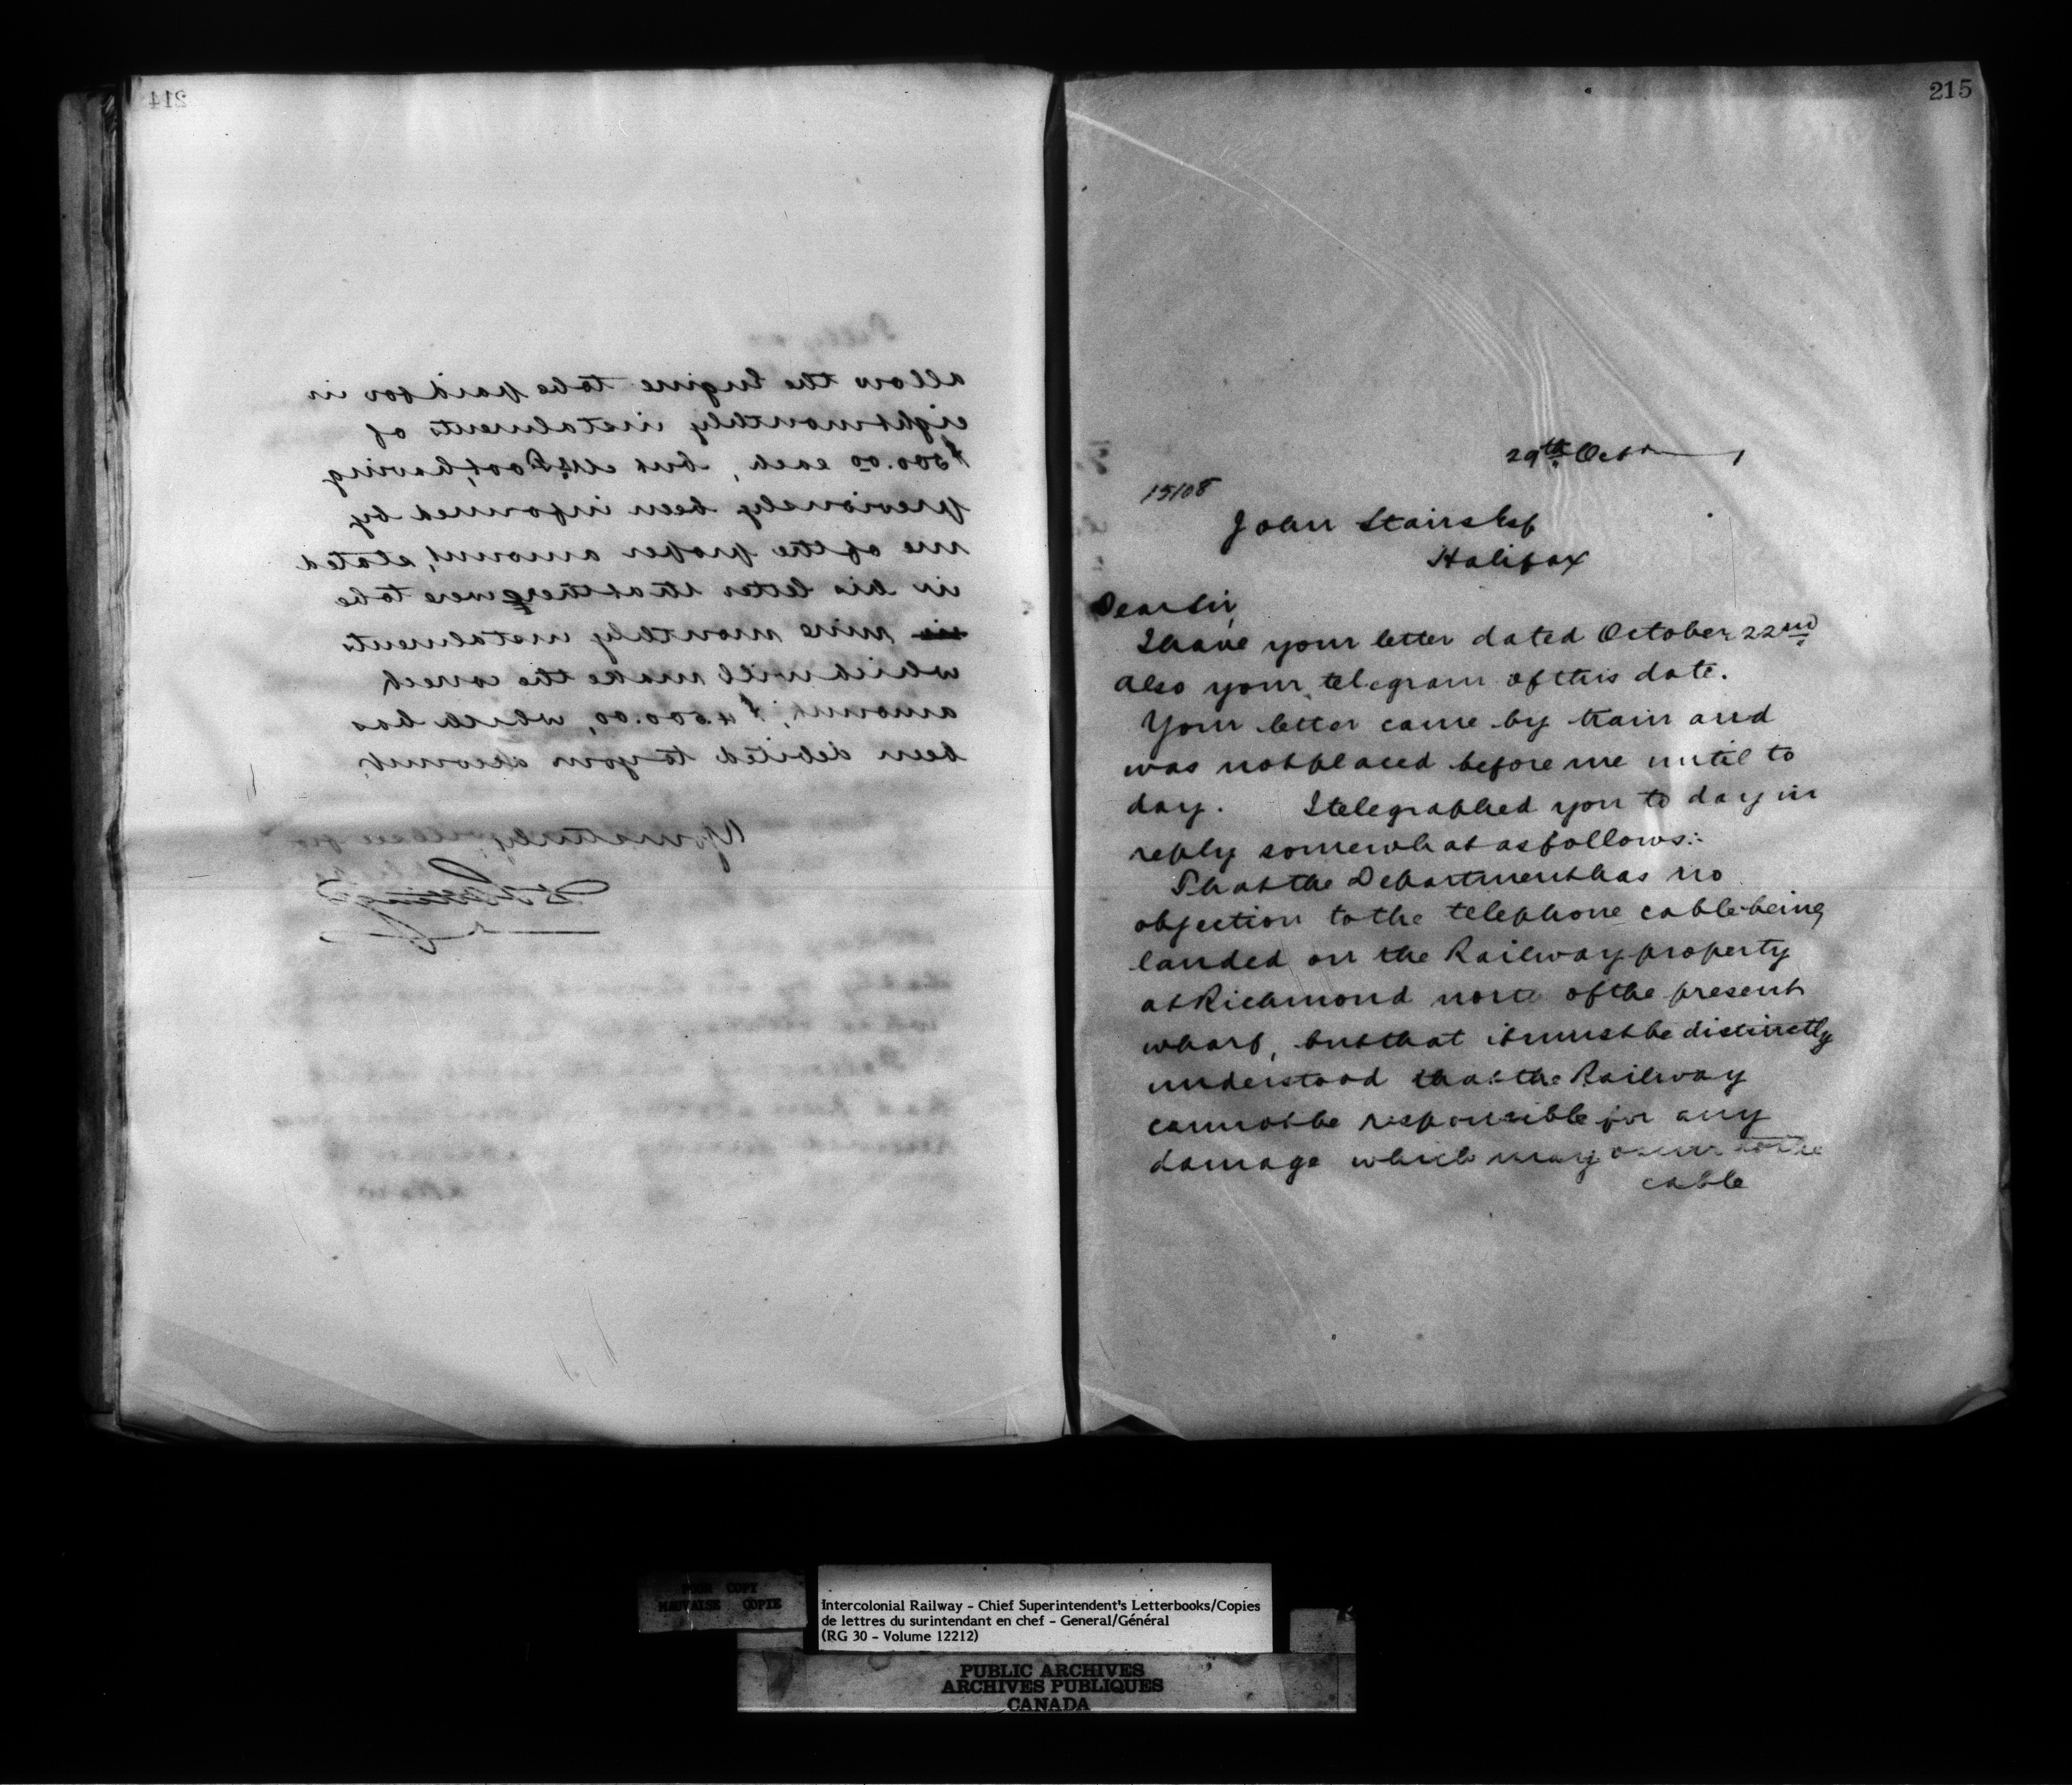 214
allow the Engine to be paid for in
eight monthly instalments of
$500.00 each, but
previously been informed by
me of the proper amount, stated
in his letter that there were to be
nine monthly instalments
which will make the correct
amount, $4500.00, which has
been debited to your account.
Yours truly
215
29th Octr
15108
John Stairs Esq
Halifax
Dear Sir,
I have your letter dated October 22nd
also your telegram of this date.
Your letter came by train and
was not placed before me until to
day. I telegraphed you to day in
reply somewhat as follows:-
That the Department has no
objection to the telephone cable being
landed on the Railway property
at Richmond north of the present
wharf, but that it must be distinctly
understood that the Railway
cannot be responsible for any
damage which may occur to the
cable
POOR COPY
MAUVAISE COPIE
Intercolonial Railway - Chief Superintendent's Letterbooks/Copies
de lettres du surintendant en chef - General/Général
(RG 30 - Volume 12212)
PUBLIC ARCHIVES
ARCHIVES PUBLIQUES
CANADA